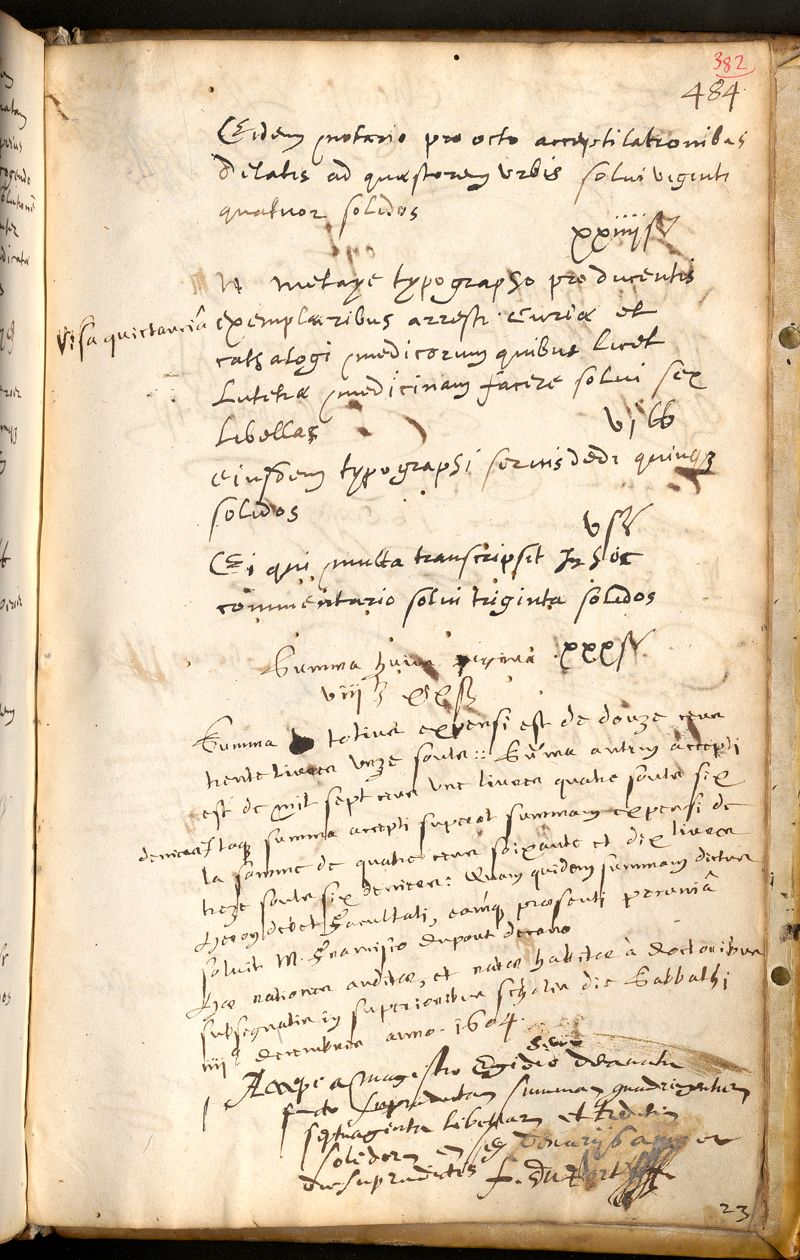 382
484
Eidem notario pro octo acceptilationibus
delatis ad quæstorem urbis solui viginti
quatuor solidos
xxiiijs
metaye typographo pro ducentis
Visa quictanciâ exemplaribus arresti Curiæ et
cathalogi medicorum quibus licet
Lutetiæ medicinam facere solui sex
libellas
vj lb
eiusdem typographi servis dedi quinq3
solidos
vs
Ei qui multa transcripsit In hoc
commentario solui triginta solidos
xxxs
Summa huius paginæ
viij
Summa totius expensi est de douze cens
trente livres unze soulz :: Summa autem accepti
est de mil sept cens une livres quatre soulz six
deniers Itaq3 summa accepti superat summam expensi de
la somme de quatre cens soixante et dix livres
treze soulz six deniers: Quam quidem summam dictus
Heron debet Facultati, eamq3 præsenti pecuniâ
soluit M. Francisco dupont decano
Hæ rationes auditæ, et ratæ habitæ à doctoribus
subsignatis in superioribus scholis die Sabbathi
iiijᵃ decembris anno 1604.
Accepi a magistro Egidio decanatu
functo supradictam summam quadringentarum
septuaginta libellarum et tredecim
solidorum et sex denariis anno et
die supradictis f. Duport
23